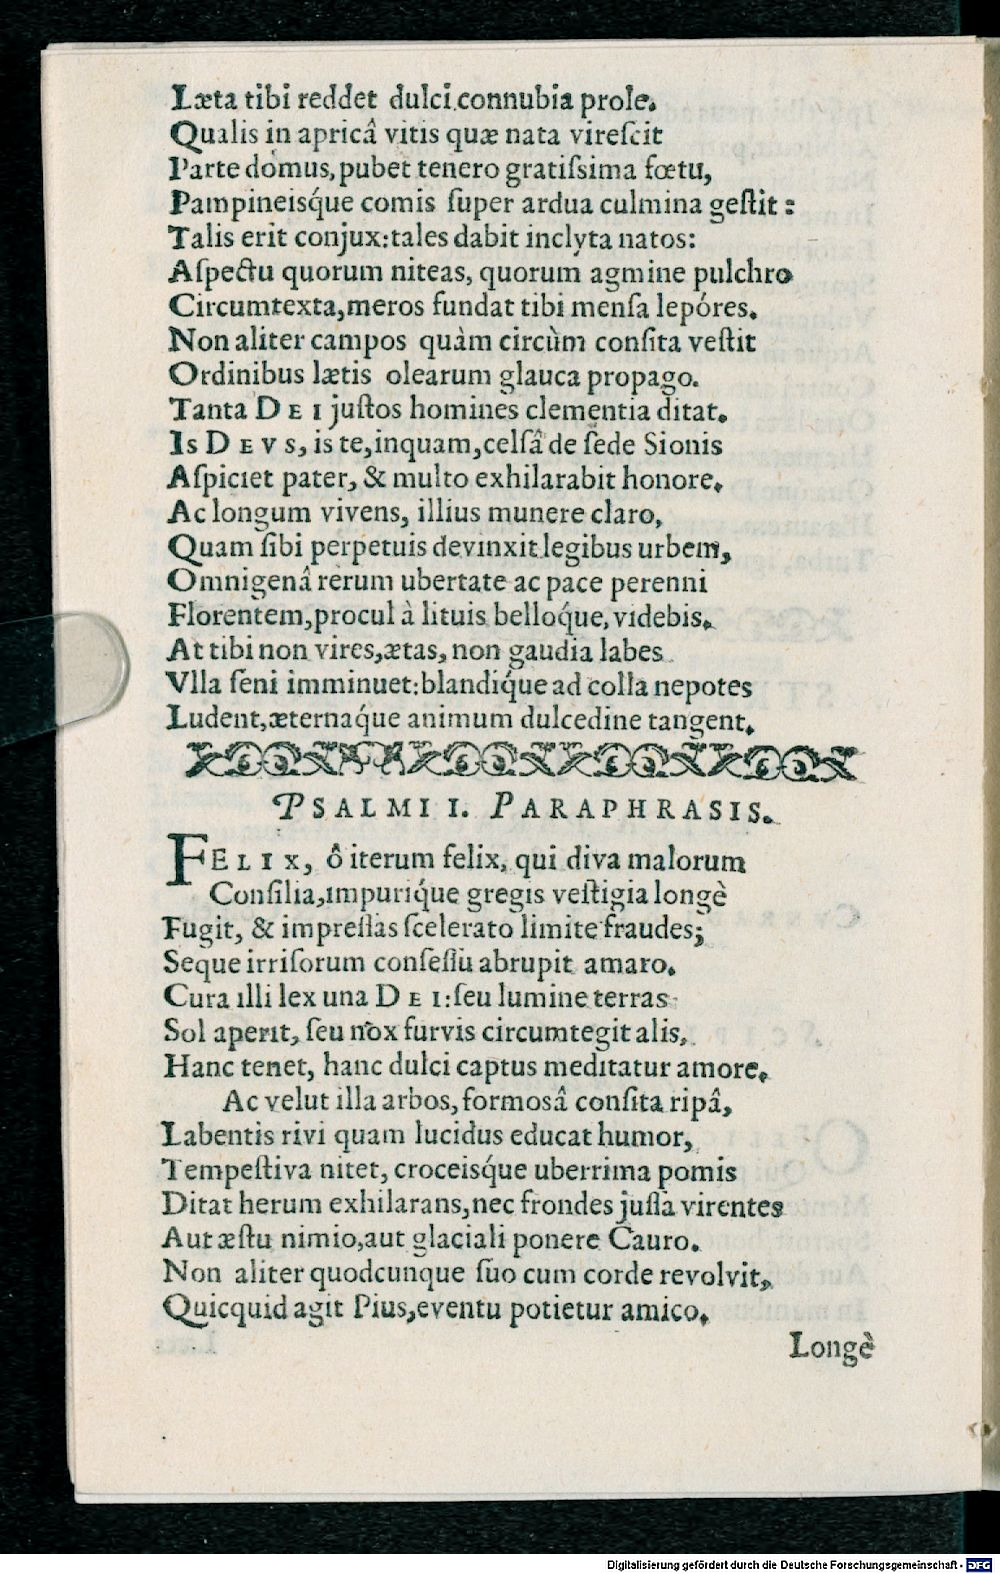 Læta tibi reddet dulci connubia prole.
Qualis in apricâ vitis quæ nata vireſcit
Parte domus, pubet tenero gratiſsima fœtu,
Pampineisq́ue comis ſuper ardua culmina geſtit:
Talis erit conjux: tales dabit inclyta natos:
Aſpectu quorum niteas, quorum agmine pulchro
Circumtexta, meros fundat tibi menſa lepóres.
Non aliter campos quàm circùm conſita veſtit
Ordinibus lætis olearum glauca propago.
Tanta DEI juſtos homines clementia ditat.
Is DEVS, is te, inquam, celſâ de ſede Sionis
Aſpiciet pater, & multo exhilarabit honore.
Ac longum vivens, illius munere claro,
Quam ſibi perpetuis devinxit legibus urbem,
Omnigenâ rerum ubertate ac pace perenni
Florentem, procul à lituis belloq́ue, videbis.
At tibi non vires, ætas, non gaudia labes
Vlla ſeni imminuet: blandiq́ue ad colla nepotes
Ludent, æternaq́ue animum dulcedine tangent.
PSALMI I. PARAPHRASIS.
FELIX, ô iterum felix, qui diva malorum
Conſilia, impuriq́ue gregis veſtigia longè
Fugit, & impreſſas ſcelerato limite fraudes;
Seque irriſorum conſeſſu abrupit amaro.
Cura illi lex una DEI: ſeu lumine terras
Sol aperit, ſeu nox furvis circumtegit alis,
Hanc tenet, hanc dulci captus meditatur amore.
Ac velut illa arbos, formosâ conſita ripâ,
Labentis rivi quam lucidus educat humor,
Tempeſtiva nitet, croceisq́ue uberrima pomis
Ditat herum exhilarans, nec frondes juſſa virentes
Aut æſtu nimio, aut glaciali ponere Cauro.
Non aliter quodcunque ſuo cum corde revolvit,
Quicquid agit Pius, eventu potietur amico.
Longè
Digitalisierung gefördert durch die Deutsche Forschungsgemeinschaft - DFG